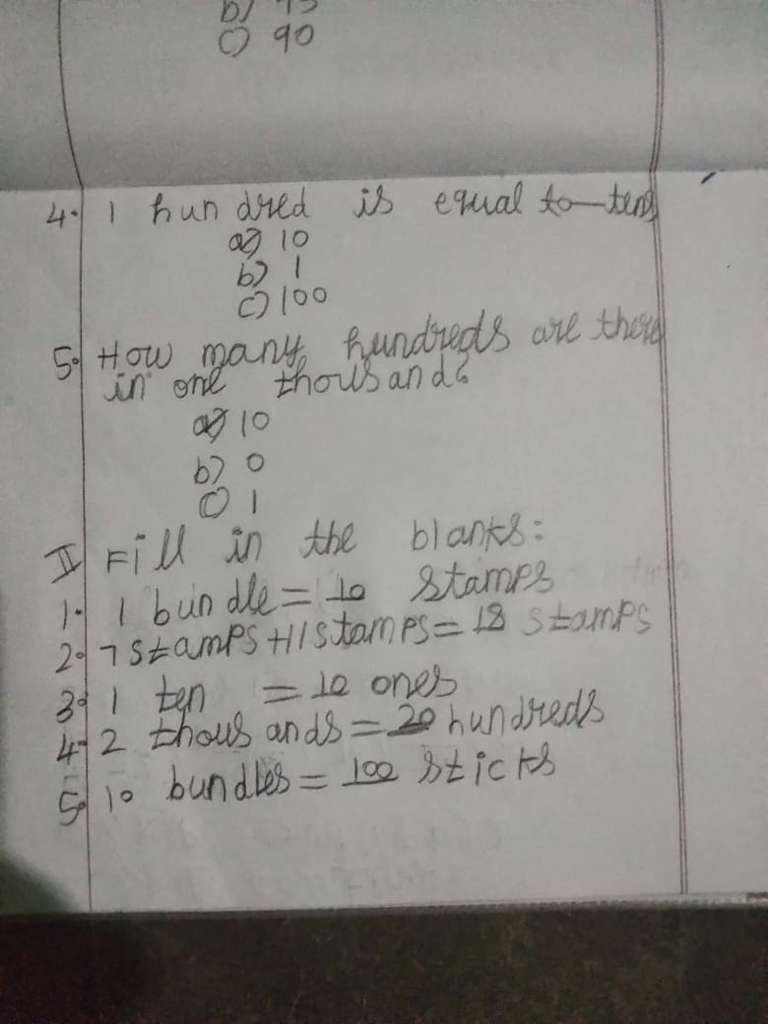 b) 95
c) 90
4. 1 hundred is equal to — tens
a) 10
b) 1
c) 100
5. How many hundreds are there
in one thousand?
a) 10
b) 0
c) 1
II Fill in the blanks:
1. 1 bundle = 10 stamps
2. 7 stamps + 11 stamps = 18 stamps
3. 1 ten = 10 ones
4. 2 thousands = 20 hundreds
5. 10 bundles = 100 sticks